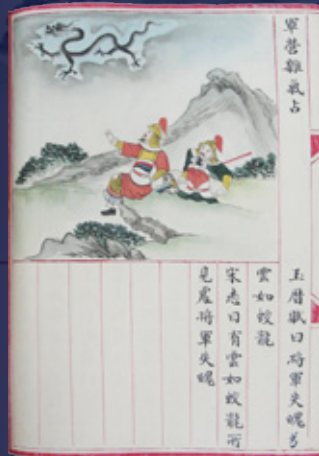 軍營雜氣占
玉曆曰將軍失魄
雲如蛟龍
宋志曰有雲如蛟龍所
見處將軍失魄